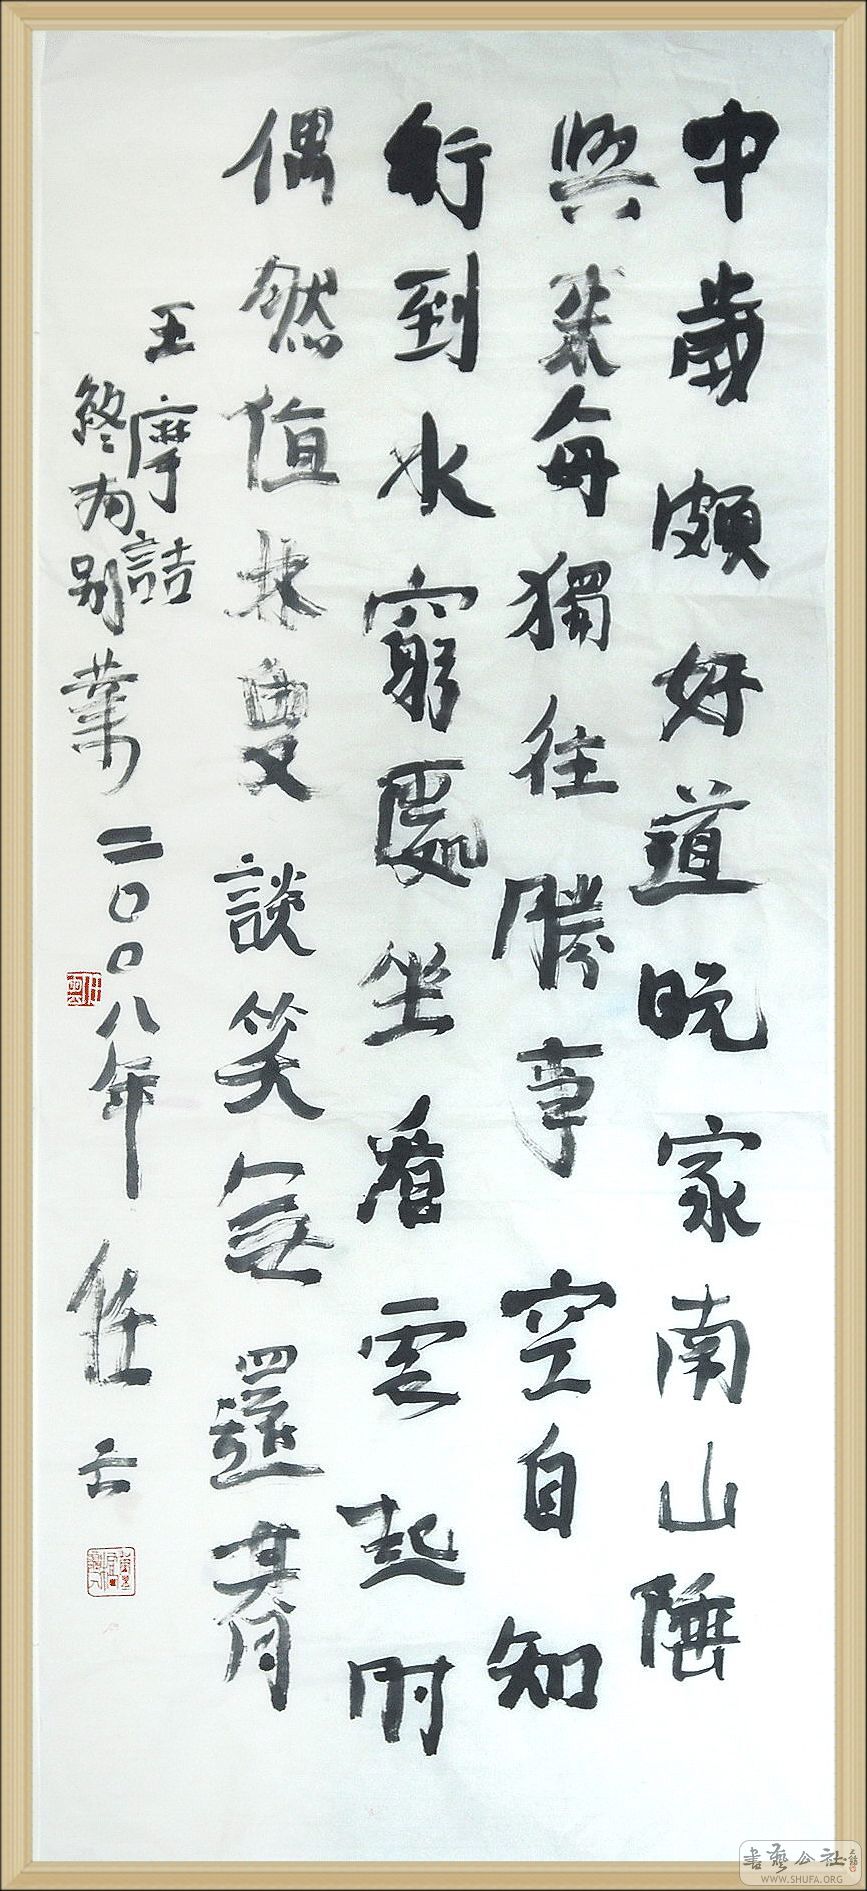 中歲頗好道晚家南山陲
興來每獨往勝事空自知
行到水窮處坐看雲起時
偶然值林叟談笑無還春
王摩詰
終南別業二〇〇八年任云
書藝公社
WWW.SHUFA.ORG